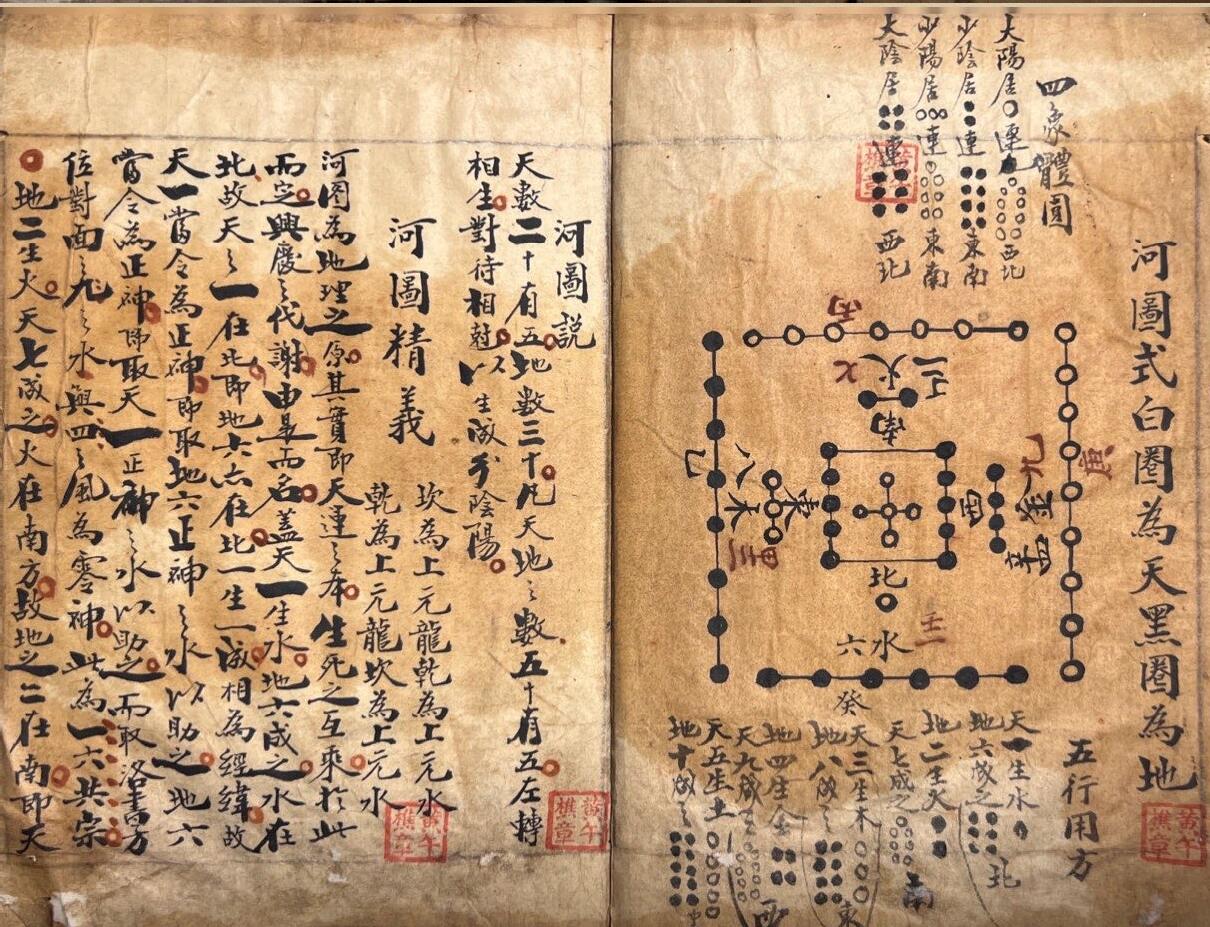 河圖式白圈為天黑圈為地
四象體圓
太陽居一連九西北
少陰居二連八東南
少陽居三連七東南
太陰居四連六西北
丙
七火二
南
巳
八木三
東
寅
北
水六
壬一
癸
西
九金
辛
庚
五行用方
天一生水
地六成之
北
地二生火
天七成之
南
天三生木
地八成之
東
地四生金
天九成之
西
天五生土
地十成之
中
黃午樵章
河圖説
天數二十有五地數三十凡天地之數五十有五左轉
相生對待相尅以生成分陰陽
河圖精義
坎為上元龍乾為上元水
乾為上元龍坎為上元水
河圖為地理之原其實即天運之本生死之互乘於此
而定興廢之代謝由是而名蓋天一生水地六成之水在
北故天之一在北即地六亦在北一生一成相為經緯故
天一當令為正神即取地六正神之水以助之地六
當令為正神即取天一正神之水以助之而取洛書方
位對面之九之水與四之風為零神此為一六共宗
地二生火天七成之火在南方故地之二在南即天